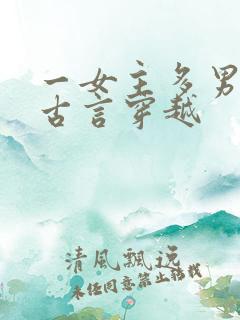 一女主多男
古言穿越
清風飄逸
未经同意禁止转载